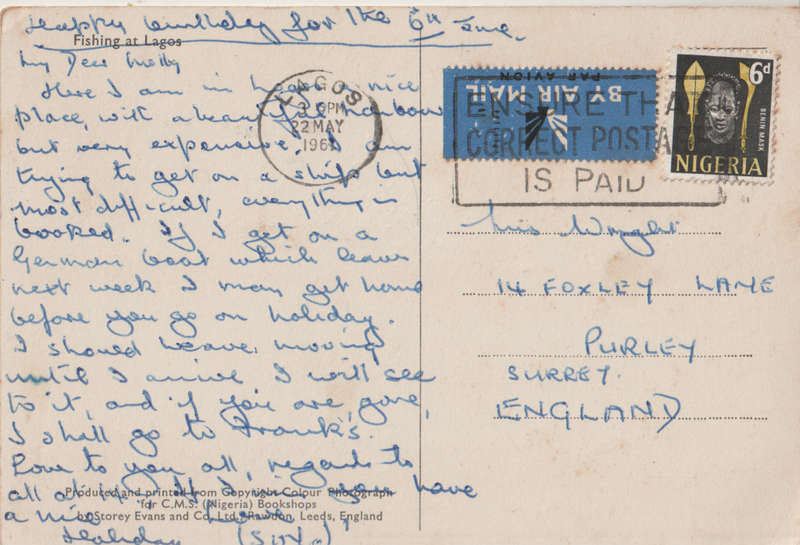 Happy birthday for the 6th June.
Fishing at Lagos
My Dear Molly
Here I am in Lagos, nice
place, with a beautiful harbour
but very expensive. I am
trying to get on a ship but
most difficult, everything is
booked. If I get on a
German boat which leaves
next week I may get home
before you go on holiday.
I should leave moving
until I arrive I will see
to it, and if you are gone,
I shall go to Frank's.
Love to you all, regards to
all at you have
a nice
Holiday
Produced and printed from Copyright Colour Photograph
for C.M.S. (Nigeria) Bookshops
by Storey Evans and Co. Ltd., Rawdon, Leeds, England
LAGOS
PM
22 MAY
196
BY AIR MAIL
PAR AVION
ENSURE THAT
CORRECT POSTAGE
IS PAID
6d
BENIN MASK
NIGERIA
Miss Wright
14 FOXLEY LANE
PURLEY
SURREY.
ENGLAND